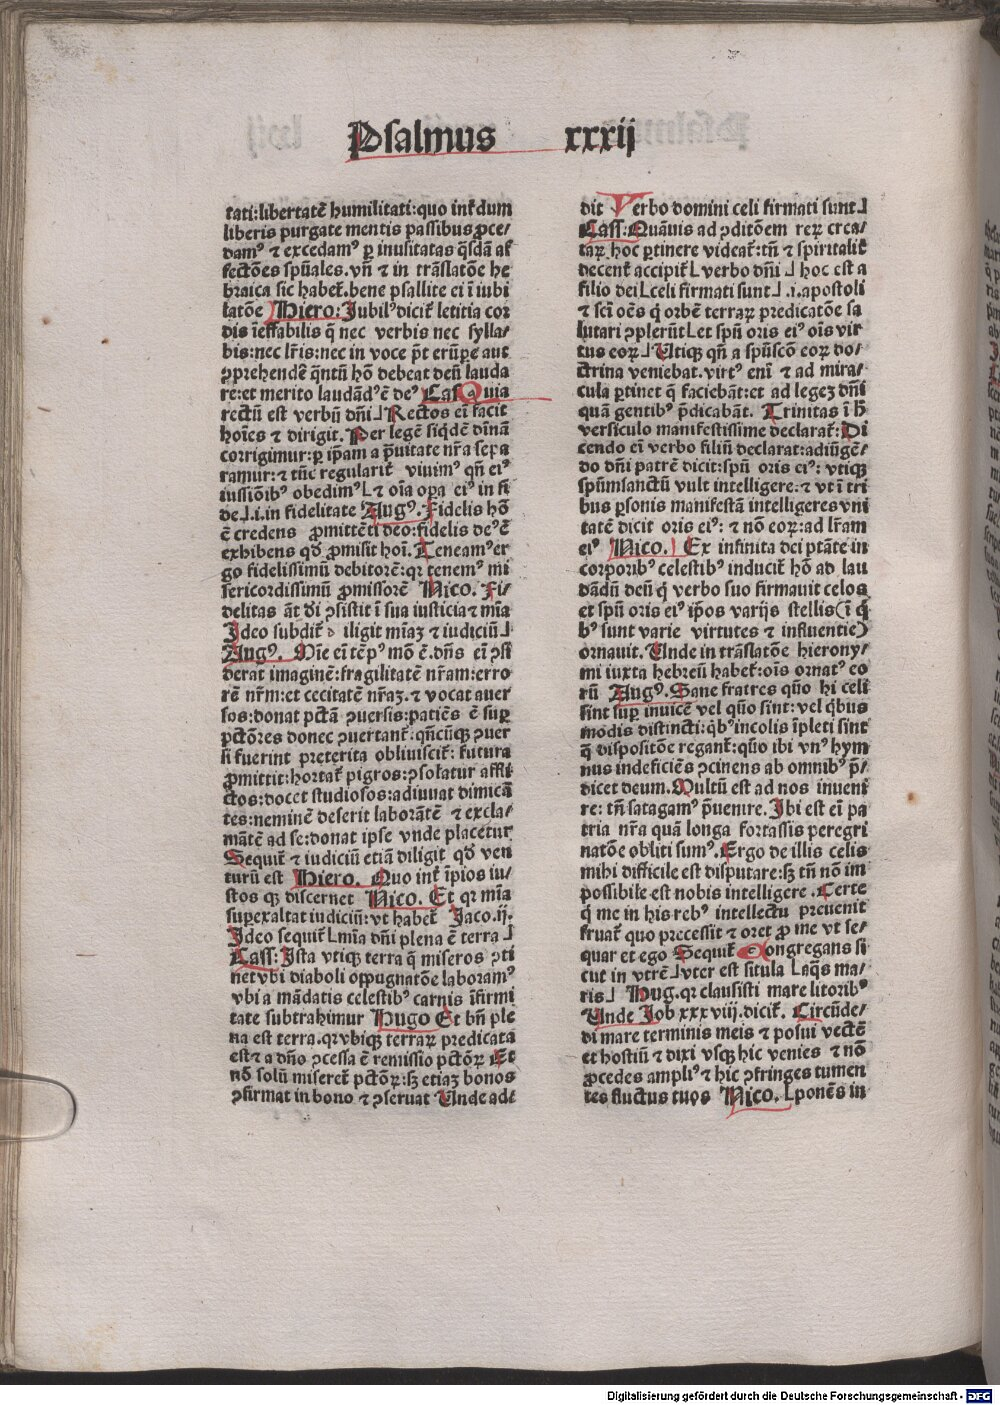 Psalmus xxxij
tati:libertatē humilitati:quo int̄dum
liberis purgate mentis passibus ꝓce/
damꝰ ⁊ excedamꝰ ꝑ inusitatas q̄sdā af
fectōes spūales.vn̄ ⁊ in trāslatōe he
braica sic habet̄.bene psallite ei ī iubi
latōe Hiero: Jubilꝰ dicit̄ letitia cor
dis ineffabilis q̄ nec verbis nec sylla/
bis:nec lr̄is:nec in voce p̄t erūpe aut
ꝯprehendē q̄ntū hō debeat deū lauda
re:et merito laudādꝰ ē deꝰ Cas Quia
rectū est verbū dn̄i⅃ Rectos ei facit
hoīes ⁊ dirigit. Per legē siqdē dīnā
corrigimur:ꝑ ip̄am a p̄uitate nr̄a sepa
ramur:⁊ tūc regularit̄ viuimꝰ qn̄ eiꝰ
iussiōibꝰ obedimꝰ L⁊ oīa opa eiꝰ in fi
de⅃.i.in fidelitate Augꝰ. Fidelis hō
ē credens ꝓmittēti deo:fidelis deꝰ ē
exhibens qd̄ ꝓmisit hoī. Teneamꝰ er
go fidelissimū debitorē:qꝛ tenemꝰ mi
sericordissimū ꝓmissorē Nico. Fi/
delitas āt di ꝯsistit ī sua iusticia ⁊ mīa
Jdeo subdit̄ diligit mīaꝫ ⁊ iudiciū⅃
Augꝰ. Mīe ei tēpꝰ mō ē.dn̄s ei ꝯsi
derat imaginē:fragilitatē nr̄am:erro
rē nr̄m:et cecitatē nr̄aꝫ.⁊ vocat auer
sos:donat pctā ꝯuersis:patiēs ē suꝑ
pctōres donec ꝯuertant̄:qn̄cūqꝫ ꝯuer
si fuerint preterita obliuiscit̄: futura
ꝓmittit:hortat̄ pigros:ꝯsolatur affli
ctos:docet studiosos:adiuuat dimicā
tes:neminē deserit laborātē ⁊ excla/
mātē ad se:donat ipse vnde placetur
Sequit̄ ⁊ iudiciū etiā diligit qd̄ ven
turū est Hiero. Quo int̄ īpios iu/
stos qꝫ discernet Nico. Et qꝛ mīa
suꝑexaltat iudiciū:vt habet̄ Jaco.ij.
Jdeo sequit̄ Lmīa dn̄i plena ē terra⅃
Cass: Jsta vtiqꝫ terra q̄ miseros ꝯti
net vbi diaboli oppugnatōe laboramꝰ
vbi a mādatis celestibꝰ carnis īfirmi
tate subtrahimur Hugo Et bn̄ ple
na est terra.qꝛ vbiqꝫ terraꝝ predicata
est ⁊ a dn̄o ꝯcessa ē remissio pctōꝝ Et
nō solū miseret̄ pctōꝝ:sꝫ etiaꝫ bonos
ꝯfirmat in bono ⁊ ꝯseruat Unde ad/
dit Verbo domini celi firmati sunt⅃
Cass: Quāuis ad ꝯditōem reꝝ crea/
taꝝ hoc ꝑtinere videat̄:tn̄ ⁊ spiritalit̄
decent̄ accipit̄ L verbo dn̄i ⅃ hoc est a
filio dei Lceli firmati sunt⅃ .i.apostoli
⁊ sci oēs q̄ orbē terraꝝ predicatōe sa
lutari ꝯplerūt Let spū oris eiꝰ oīs vir
tus eoꝝ⅃ Utiqꝫ qn̄ a spūscō eoꝝ do/
ctrina veniebat.virtꝰ enī ⁊ ad mira/
cula ꝑtinet q̄ faciebāt:et ad legeꝫ dn̄i
quā gentibꝰ p̄dicabāt. Trinitas ī h̄
versiculo manifestissime declarat̄: Di
cendo ei verbo filiū declarat:adiūgē/
do dn̄i patrē dicit:spū oris eiꝰ: vtiqꝫ
spūmsanctū vult intelligere:⁊ vt ī tri
bus ꝑsonis manifestā intelligeres vni
tatē dicit oris eiꝰ: ⁊ nō eoꝝ:ad lr̄am
eiꝰ Nico. Ex infinita dei ptāte in
corporibꝰ celestibꝰ inducit̄ hō ad lau
dādū deū q̄ verbo suo firmauit celos
et spū oris eiꝰ ip̄os varijs stellis(ī q̄
bꝰ sunt varie virtutes ⁊ influentie)
ornauit. Unde in trāslatōe hierony/
mi iuxta hebreū habet̄:oīs ornatꝰ eo
rū Augꝰ. Sane fratres quō hi celi
sint suꝑ inuicē vel quō sint: vel q̄bus
modis distincti:q̄bꝰ incolis īpleti sint
q̄ dispositōe regant̄:quō ibi vnꝰ hym
nus indeficiēs ꝯcinens ab omnibꝰ p̄/
dicet deum. Multū est ad nos inueni
re: tn̄ satagamꝰ p̄uenire. Jbi est ei pa
tria nr̄a quā longa fortassis peregri
natōe obliti sumꝰ. Ergo de illis celis
mihi difficile est disputare:sꝫ tn̄ nō im
possibile est nobis intelligere. Certe
q̄ me in his rebꝰ intellectu preuenit
fruat̄ quo precessit ⁊ oret ꝓ me vt se/
quar et ego Sequit̄ Congregans si
cut in vtrē⅃ vter est situla Laq̄s ma/
ris⅃ Hug.qꝛ clausisti mare litoribꝰ
Unde Job xxxviij.dicit̄. Circūde/
di mare terminis meis ⁊ posui vectē
et hostiū ⁊ dixi vsqꝫ hic venies ⁊ nō
ꝓcedes ampliꝰ ⁊ hic ꝯfringes tumen
tes fluctus tuos Nico. Lponēs in
Digitalisierung gefördert durch die Deutsche Forschungsgemeinschaft - DFG